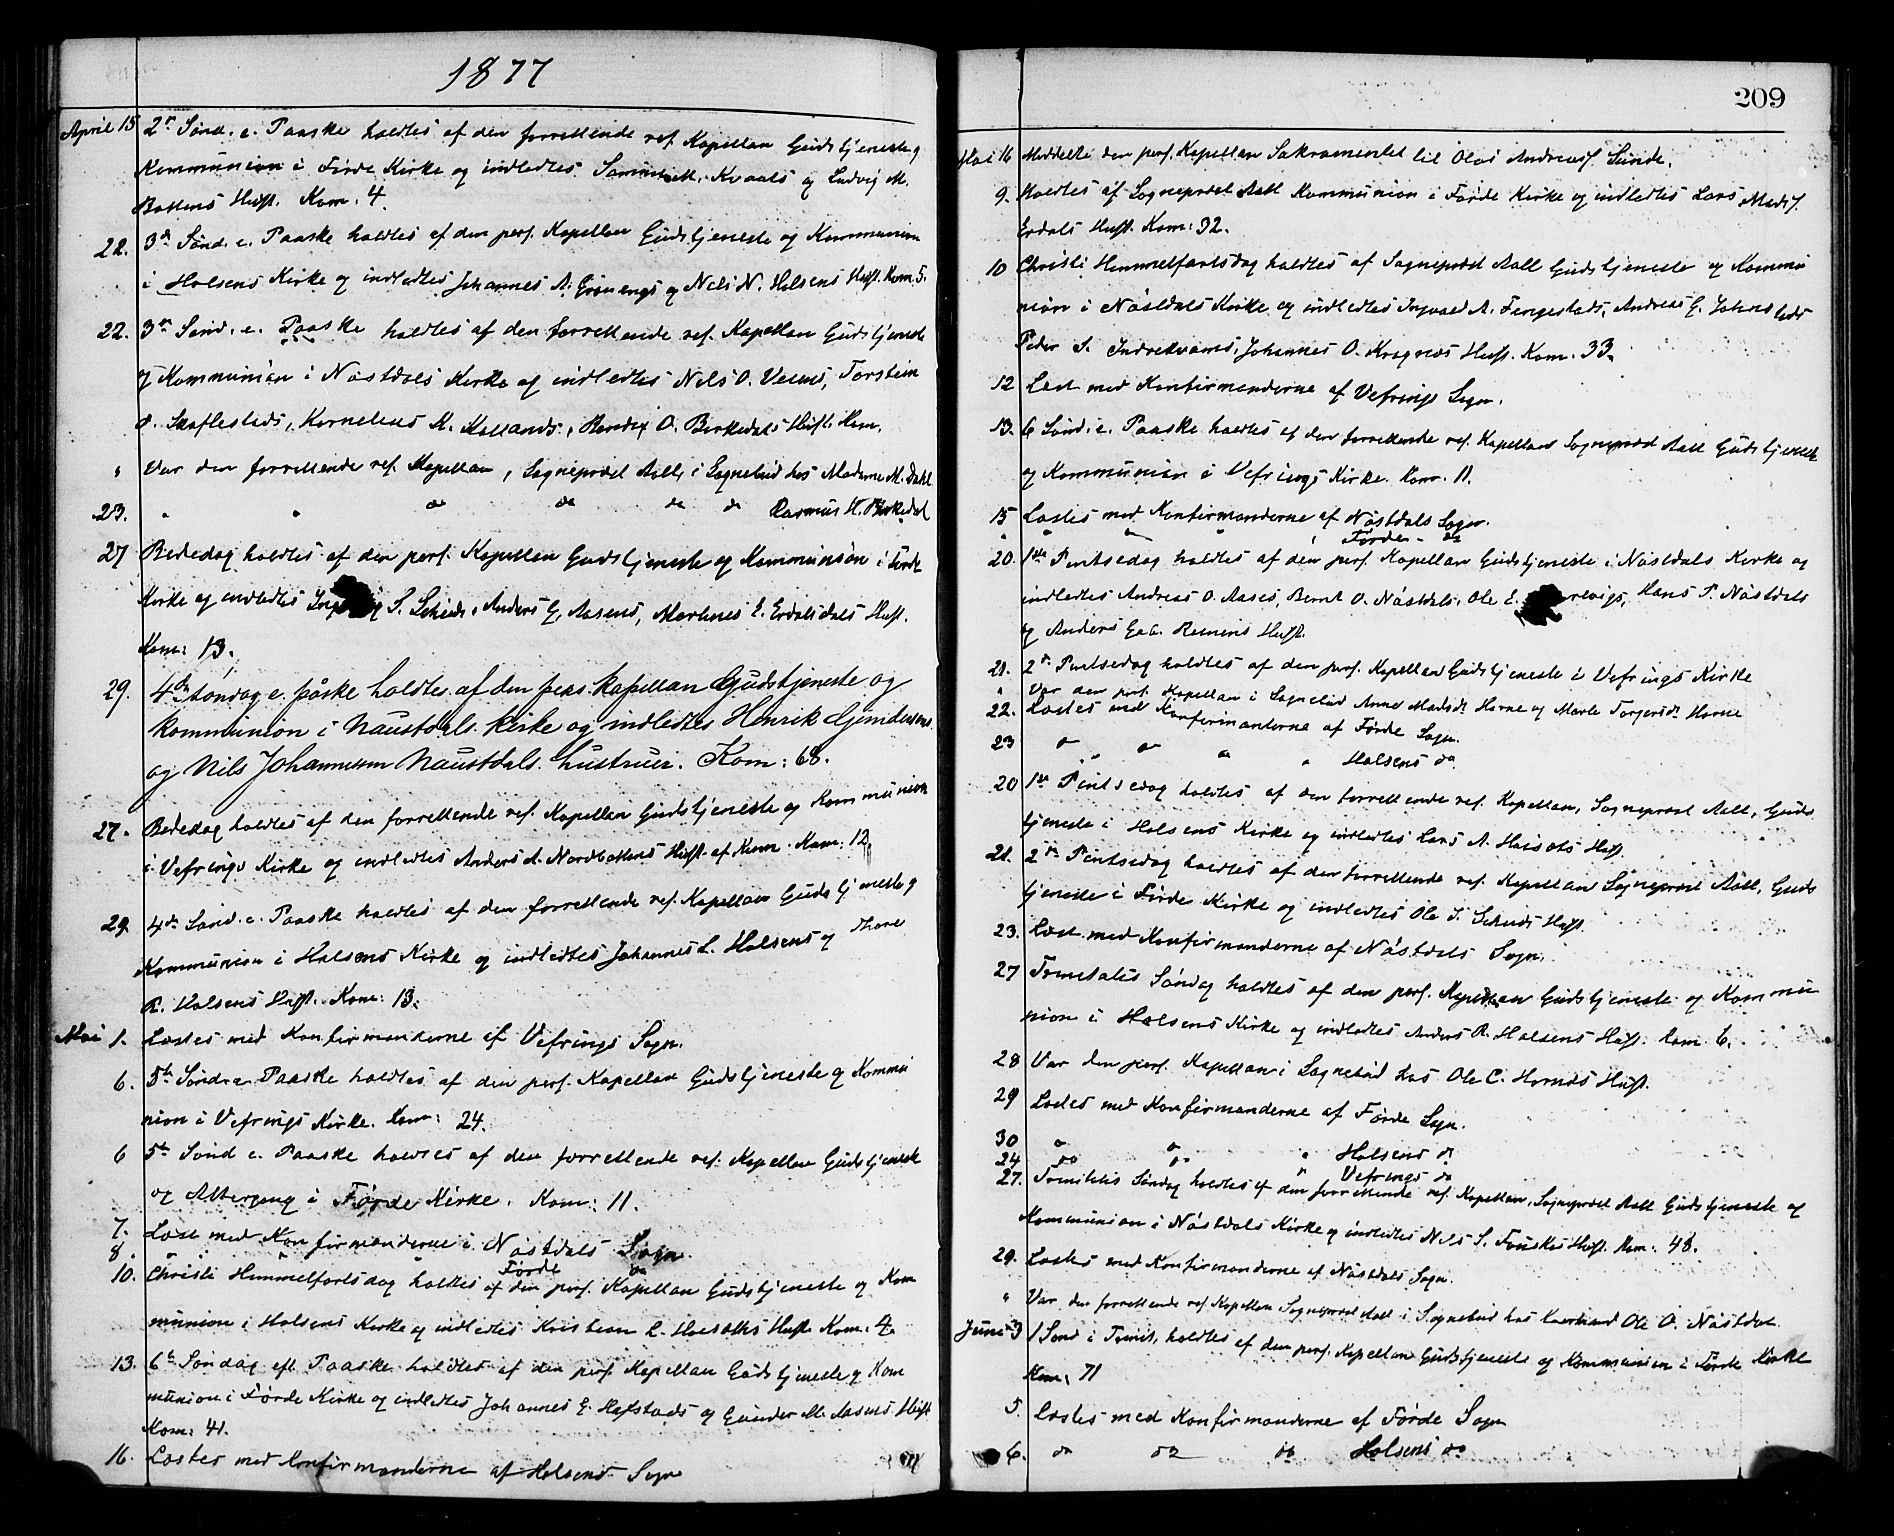 1877
April 15 2n Sønd. e. Paaske holdtes af den forrettende res. Kapellan Gudstjeneste og
Kommunion i Førde Kirke og indledtes Samuel M. Kvaals og Ludvig M.
Bottens Hust. Kom. 4.
22. 3de Sønd. e. Paaske holdtes af den pers. Kapellan Gudstjeneste og Kommunion
i Holsens Kirke og indledtes Johannes A. Grønengs og Nels N. Holsens Hust. Kom. 5.
22. 3de Sønd. e. Paaske holdtes af den forrettende res. Kapellan Gudstjeneste
og Kommunion i Nøstdals Kirke og indledtes Nels O. Veums, Torstein
O. Skaflesteds, Kornelius M. Kallands, Bendix O. Birkedals Hust. Kom.
" Var den forrettende res. Kapellan, Sogneprest Aall, i Sognebud hos Madame M. Dahl
23. " " do do do do Rasmus H. Birkedal
27 Bededag holdtes af den pers. Kapellan Gudstjeneste og Kommunion i Førde
Kirke og indledtes S. Scheids, Anders G. Aasens, Martines E. Erdalsdals Hust.
Kom: 13.
29. 4de søndag e. påske holdtes af den pers. kapellan Gudstjeneste og
kommunion i Naustdals kirke og indledtes Henrik Gjendemens
og Nils Johannessen Naustdals hustruer. Kom: 68.
27. Bededag holdtes af den forrettende res. Kapellan Gudstjeneste og Kommunion
i Vefrings Kirke og indledtes Anders A. Nordbottens Hust. af Kinn. Kom: 12
29. 4de Sønd. e. Paaske holdtes af den forrettende res. Kapellan Gudstjeneste og
Kommunion i Holsens Kirke og indledtes Johannes L. Holsens og Thore
R. Holsens Hust. Kom: 13.
Mai 1. Læstes med Konfirmanderne af Vefrings Sogn.
6. 5te Sønd e. Paaske holdtes af den pers. Kapellan Gudstjeneste og Kommu
nion i Vefrings Kirke. Kom: 24.
6 5te Sønd e. Paaske holdtes af den forrettende res. Kapellan Gudstjeneste
og Altergang i Førde Kirke. Kom: 11.
7. Læst med Konfirmanderne i Nøstdals Sogn.
8. " " " Førde do
10. Christi Himmelfartsdag holdtes af den pers. Kapellan Gudstjeneste og Kom
munion i Holsens Kirke og indledtes Kristian L. Hoisæths Hust. Kom: 4.
13. 6te Søndag eft. Paaske holdtes af den pers. Kapellan Gudstjeneste og Kom
munion i Førde Kirke og indledtes Johannes E. Hafstads og Gunder M. Aasens Hust
Kom: 41.
16. Læstes med Konfirmanderne af Holsens Sogn
209
Mai 16 Meddelte den pers. Kapellan Sakramentet til Olai Andreass. Sunde.
9. Holdtes af Sogneprest Aall Kommunion i Førde Kirke og indledtes Lars Mads.
Erdals Hust. Kom: 32.
10 Christi Himmelfartsdag holdtes af Sogneprest Aall Gudstjeneste og Kommu
nion i Nøstdals Kirke og indledtes Ingvald A. Fimgestads, Andreas E.
Peder S. Indrekvams, Johannes O. Kragnæs Hust. Kom. 33.
12 Læst med Konfirmanderne af Vefrings Sogn.
13. 6 Sønd. e. Paaske holdtes af den forrettende res. Kapellan Sogneprest Aall Gudstjeneste
og Kommunion i Vefrings Kirke. Kom. 11.
15 Læstes med Konfirmanderne af Nøstdals Sogn.
" " " " Førde do
20. 1ste Pintsedag holdtes af den pers. Kapellan Gudstjeneste i Nøstdals Kirke og
indledtes Andreas O. Aases, Bernt O. Nøstdals, Ole E. Hans P. Nøstdals
og Anders Hust.
21. 2n Pintsedag holdtes af den pers. Kapellan Gudstjeneste i Vefrings Kirke
" Var den pers. Kapellan i Sognebud Anne Madsdr. Horne og Marte Torgersdr. Horne
22. Læstes med Konfirmanderne af Førde Sogn.
23 " " " " Holsens do.
20 1ste Pintsedag holdtes af den forrettende res. Kapellan, Sogneprest Aall, Guds
tjeneste i Holsens Kirke og indledtes Lars A. Hoisæts Hust.
21. 2n Pintsedag holdtes af den forrettende res. Kapellan Sogneprest Aall, Guds
tjeneste i Førde Kirke og indledtes Ole S. Scheids Hust.
23. Læst med Konfirmanderne af Nøstdals Sogn.
27 Trinitatis Søndag holdtes af den pers. Kapellan Gudstjeneste og Kommu
nion i Holsens Kirke og indledtes Anders R. Holsens Hust. Kom 6.
28 Var den pers. Kapellan i Sognebud hos Ole C. Hornes Hust.
29 Læstes med Konfirmanderne af Førde Sogn.
30 " " " Holsens do
24 do do " Vefrings do
27. Trinitatis Søndag holdtes af den forrettende res. Kapellan, Sogneprest Aall Gudstjeneste og
Kommunion i Nøstdals Kirke og indledtes Nels S. Fonskes Hust. Kom: 48.
29. Læstes med Konfirmanderne af Nøstdals Sogn.
" Var den forrettende res. Kapellan Sogneprest Aall i Sognebud hos Ole O. Nøstdal.
Juni 3 1 Sønd i Trinit. holdtes af den pers. Kapellan Gudstjeneste og Kommunion i Førde Kirke
Kom. 71
5. Læstes med Konfirmanderne af Førde Sogn
6. do do do Holsens do